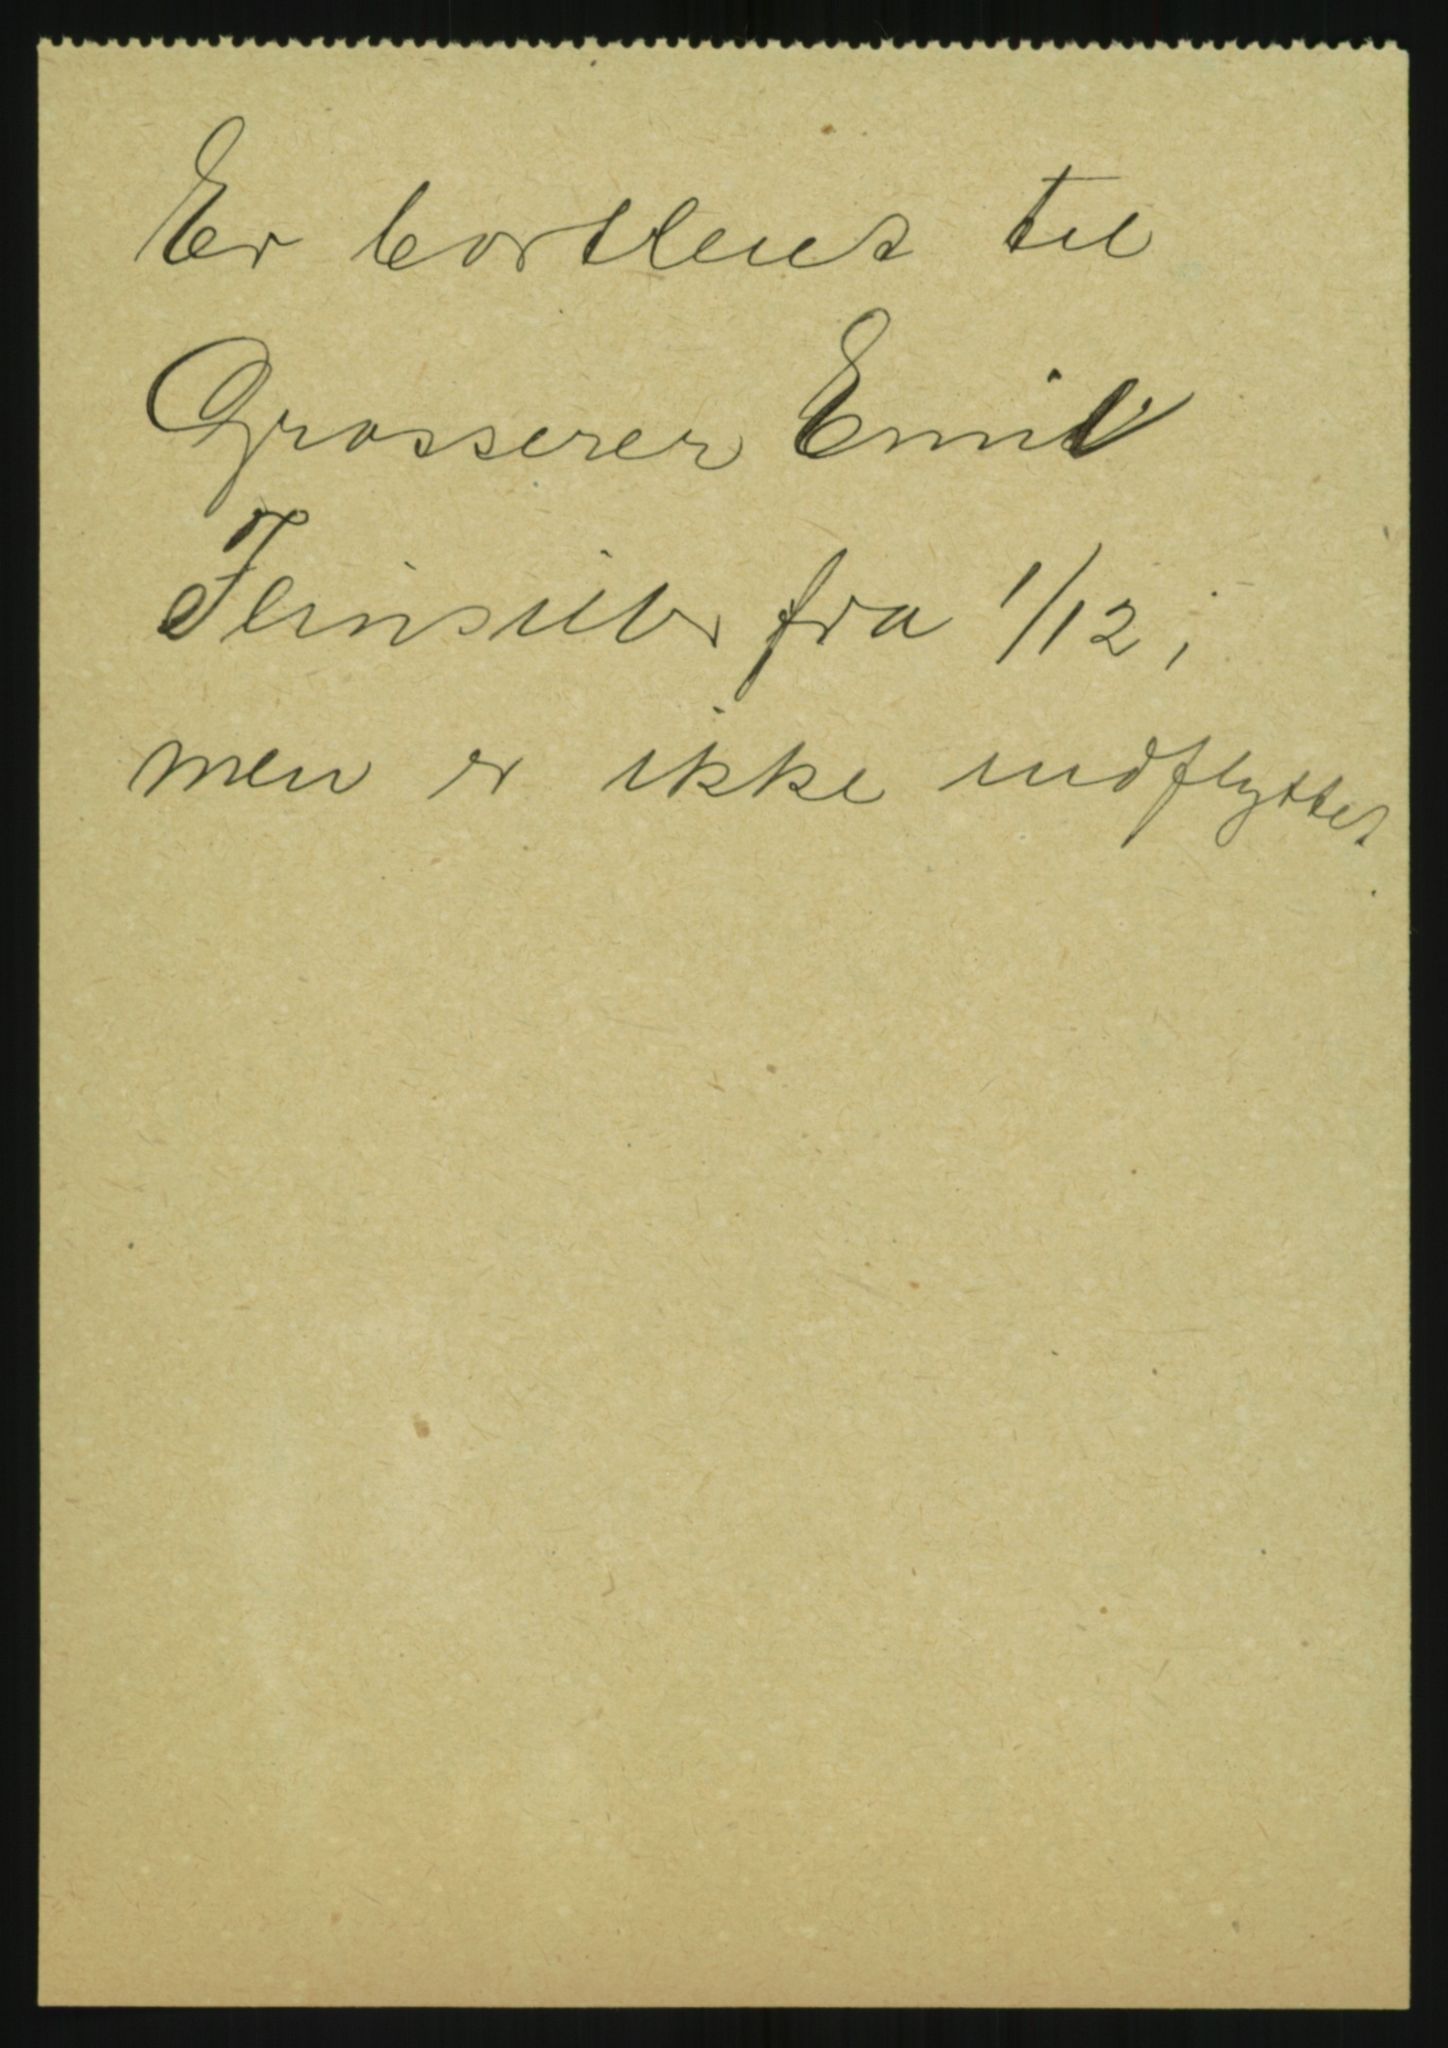 Er bortleiet til
Grosserer Emil
Feinsilber fra 1/12;
men er ikke indflyttet